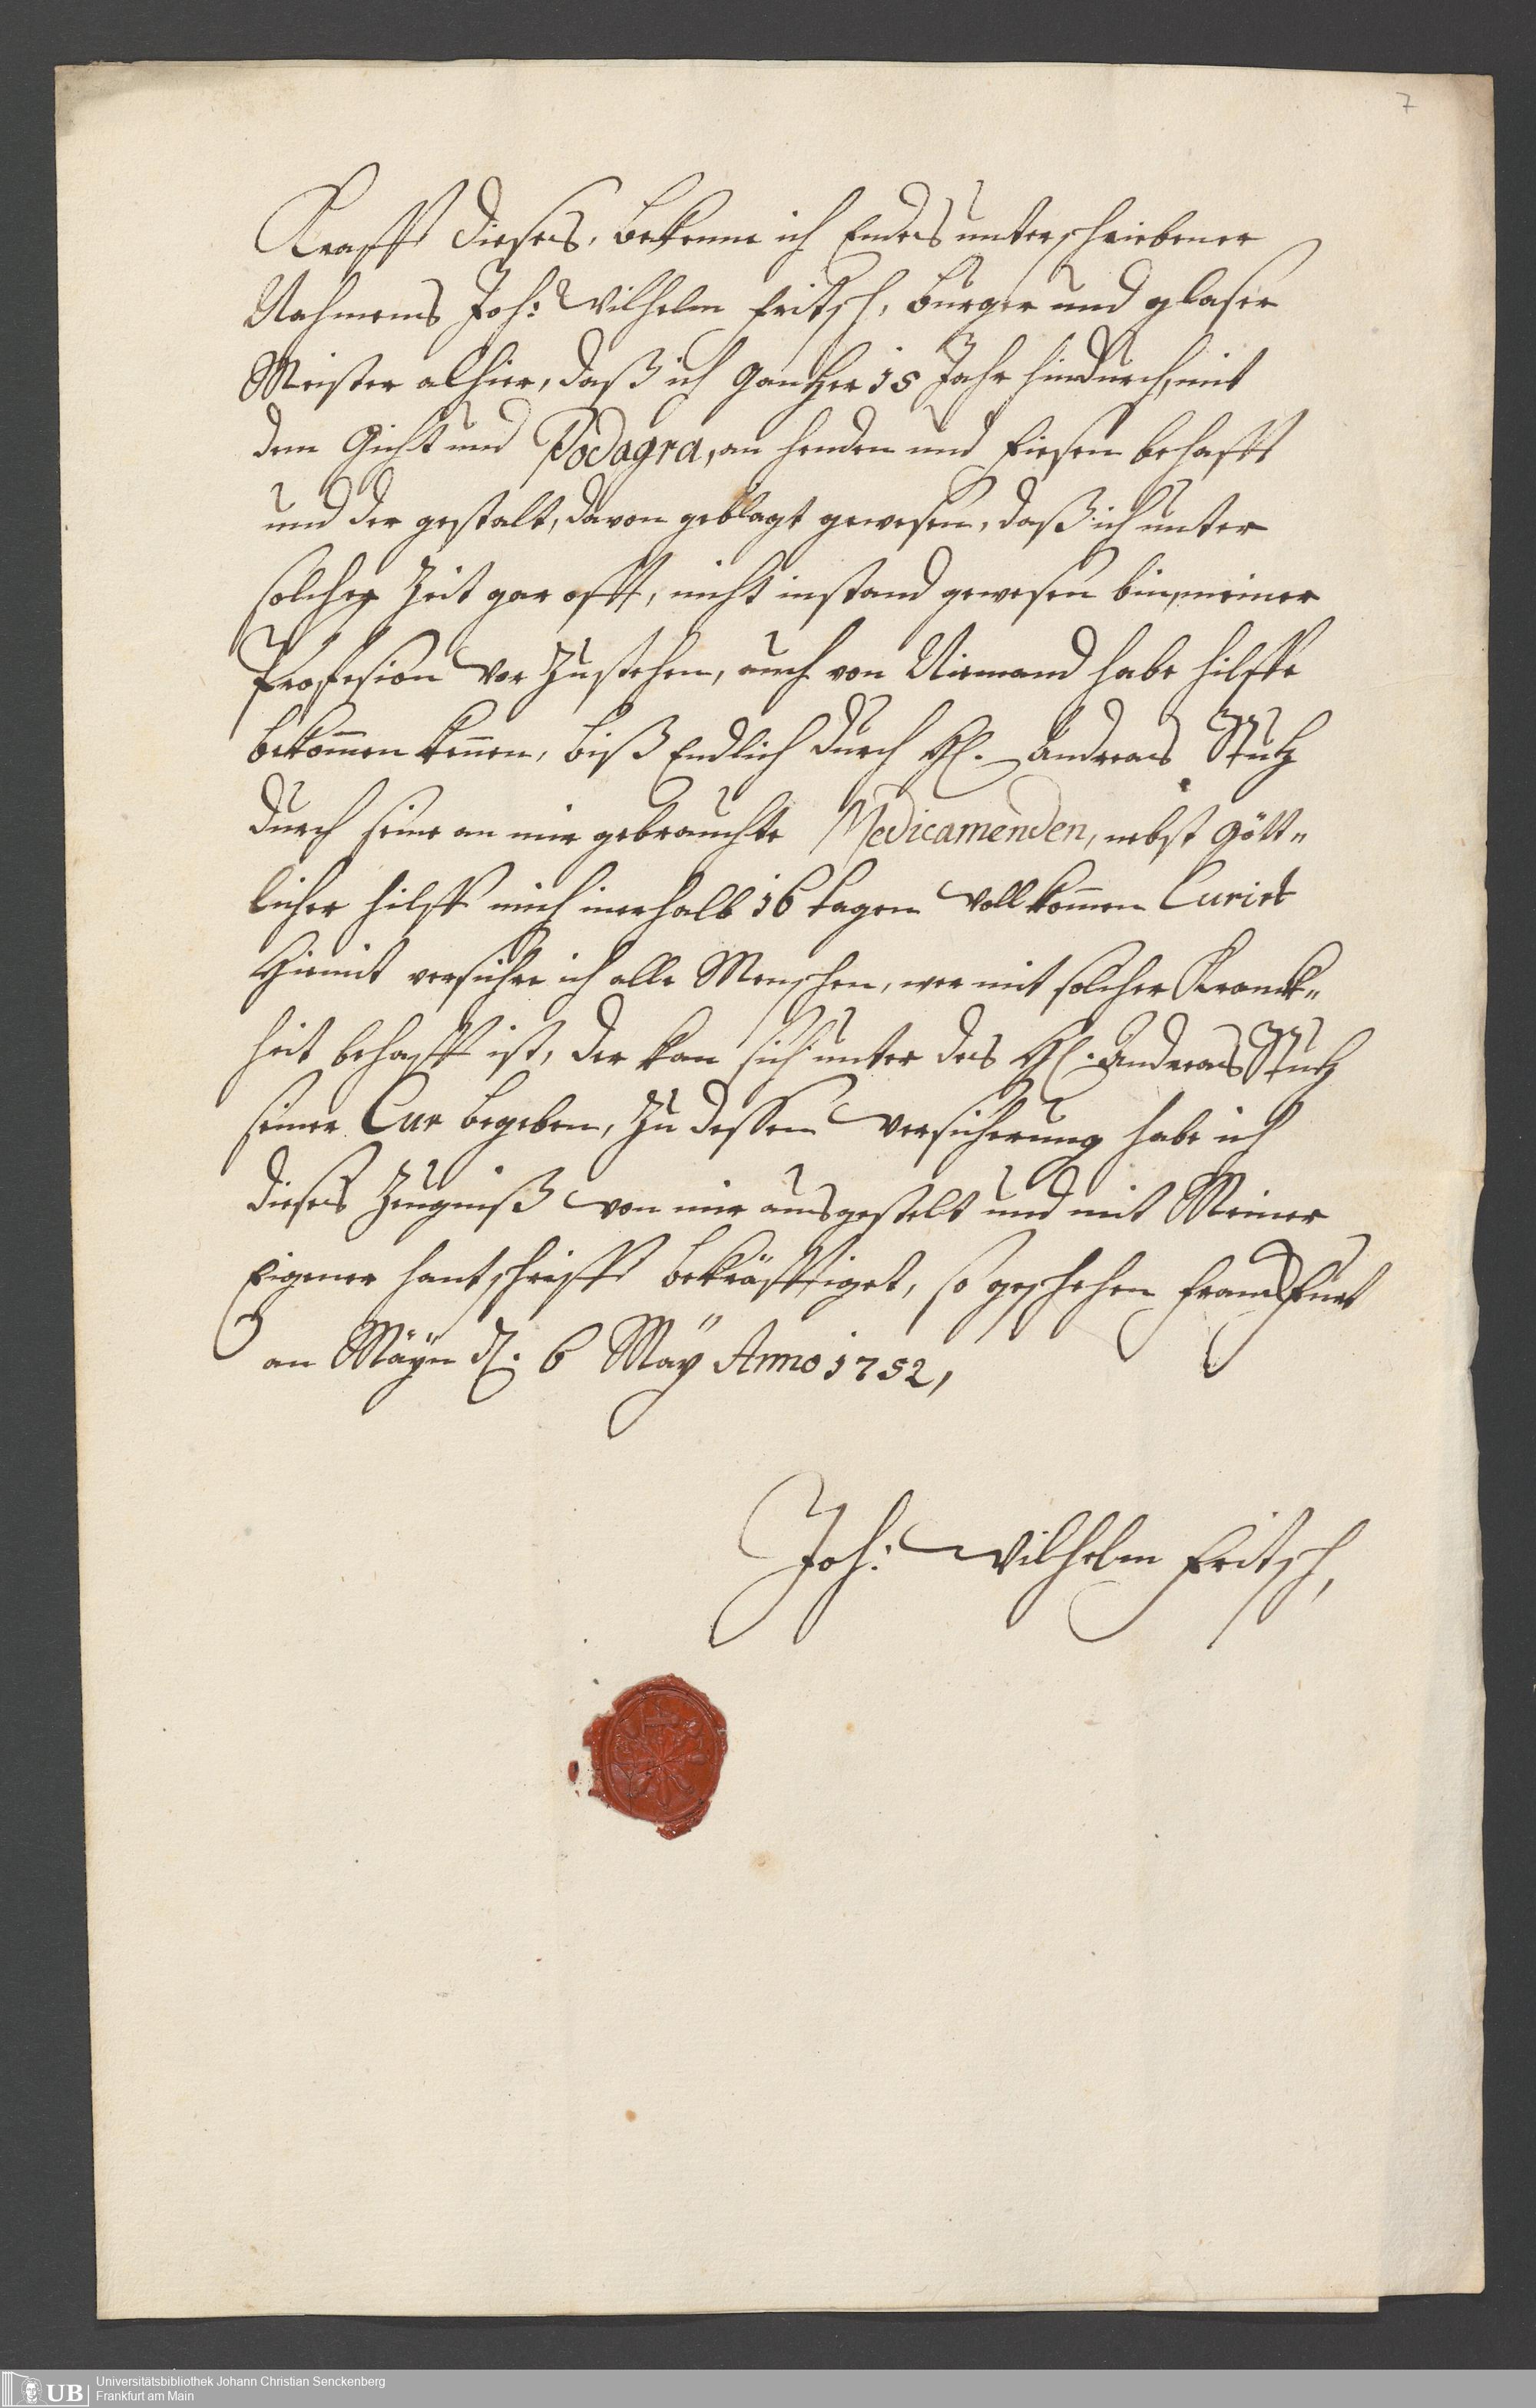 7
Krafft dieses, bekenne ich Endes unterschriebener
Nahmens Joh: Wilhelm Fritsch, burger und glaser
Meister alhier, daß ich gantzer 15 Jahr hindurch, mit
dem Gicht und Podagra, an henden und fiesen behafft
und der gestalt, davon geblagt gewesen, daß ich unter
solcher Zeit gar offt, nicht instand gewesen bin, meiner
Profesion vor zustehen, auch von Niemand habe hilffe
bekom̅en ken̅en, biß Endlich durch H. Andreas Stutz
durch seine an mir gebrauchte Medicamenden, nebst Gött„
licher hilff mich inerhalb 16 tagen vollkom̅en Curirt
Hiemit versichre ich alle Menschen, wer mit solcher Kranck„
heit behafft ist, der kan sich unter des H. Andreas Stutz
seiner Cur begeben, zu dessen versicherung habe ich
dieses Zeugniß von mir ausgestelt und mit Meiner
Eigener hantschrifft bekräfftiget, so geschehen franckfurt
an Mäyn d. 6 Maÿ Anno 1752,
Joh: Wilhelm Fritsch,
UB
Universitätsbibliothek Johann Christian Senckenberg
Frankfurt am Main